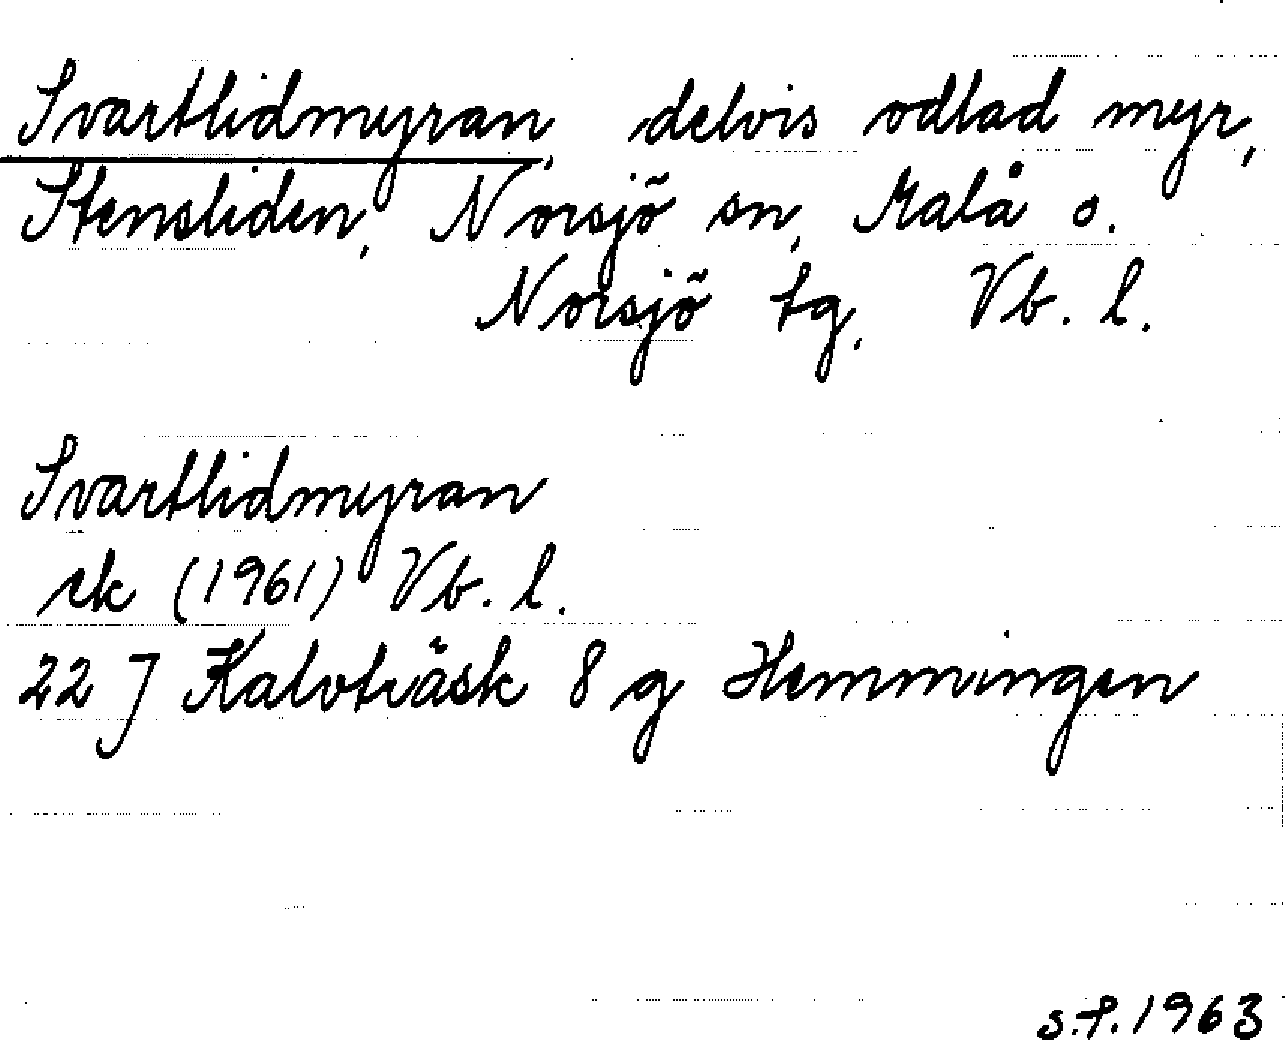 Svartlidmyran, delvis odlad myr,
Stensliden, Norsjö sn, Malå o.
Norsjö tg, Vb. l.
Svartlidmyran
rk (1961) Vb. l.
22 J Kalvträsk 8 g Hemmingen
s.f. 1963